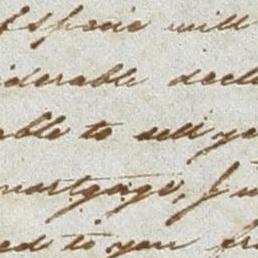 of specie will
iderable decl
able to sell yo
mortgage, I
ed to you